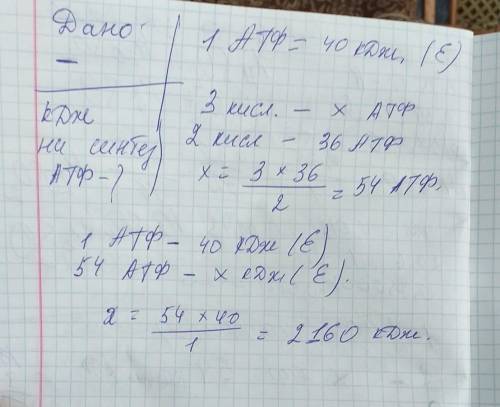 Дано:
–
1 АТФ = 40 кДж. (Е)
кДж
на синтез
АТФ - ?
3 кисл. – х АТФ
2 кисл – 36 АТФ
х = 3 × 36 / 2 = 54 АТФ.
1 АТФ – 40 кДж (Е)
54 АТФ – х кДж (Е).
х = 54 × 40 / 1 = 2160 кДж.